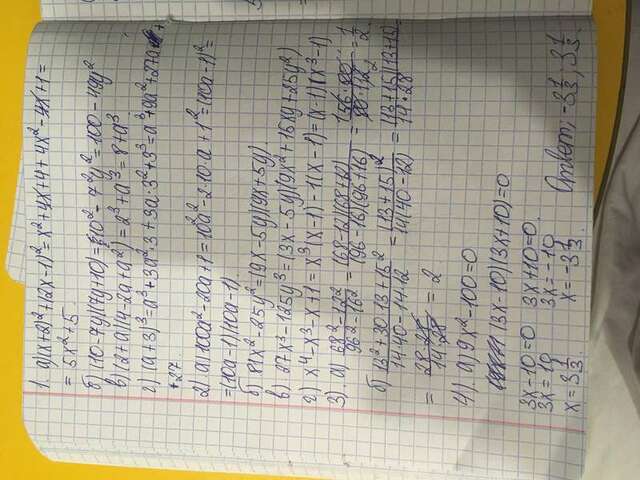 1. а) (a+2)²+(2x-1)² = x²+4x+4+4x²-4x+1=
= 5x²+5.
б) (10-7y)(7y+10)=10²-7²y²=100-49y²
в) (2+a)(4-2a+a²)=2³+a³=8+a³
г) (a+3)³=a³+3a²·3+3a·3²+3³=a³+9a²+27a+
+27
2) а) 100a²-20a+1=10²a²-2·10·a+1²=(10a-1)²=
=(10a-1)(10a-1).
б) 81x²-25y²=(9x-5y)(9x+5y)
в) 27x³-125y³=(3x-5y)(9x²+15xy+25y²)
г) x⁴-x³-x+1=x³(x-1)-1(x-1)=(x-1)(x³-1)
3) а) (68²-12²)/(96²-16²)=(68-12)(68+12)/(96-16)(96+16)= =1/2
б) (13²+30·13+15²)/(14·40-14·12)=(13+15)²/14(40-12)=(13+15)(13+15)/14·28=
= 28·28/14·28 = 2
4) а) 9x²-100=0
(3x-10)(3x+10)=0
3x-10=0 3x+10=0.
3x=10 3x=-10
x=3 1/3 x=-3 1/3
Ответ: -3 1/3; 3 1/3